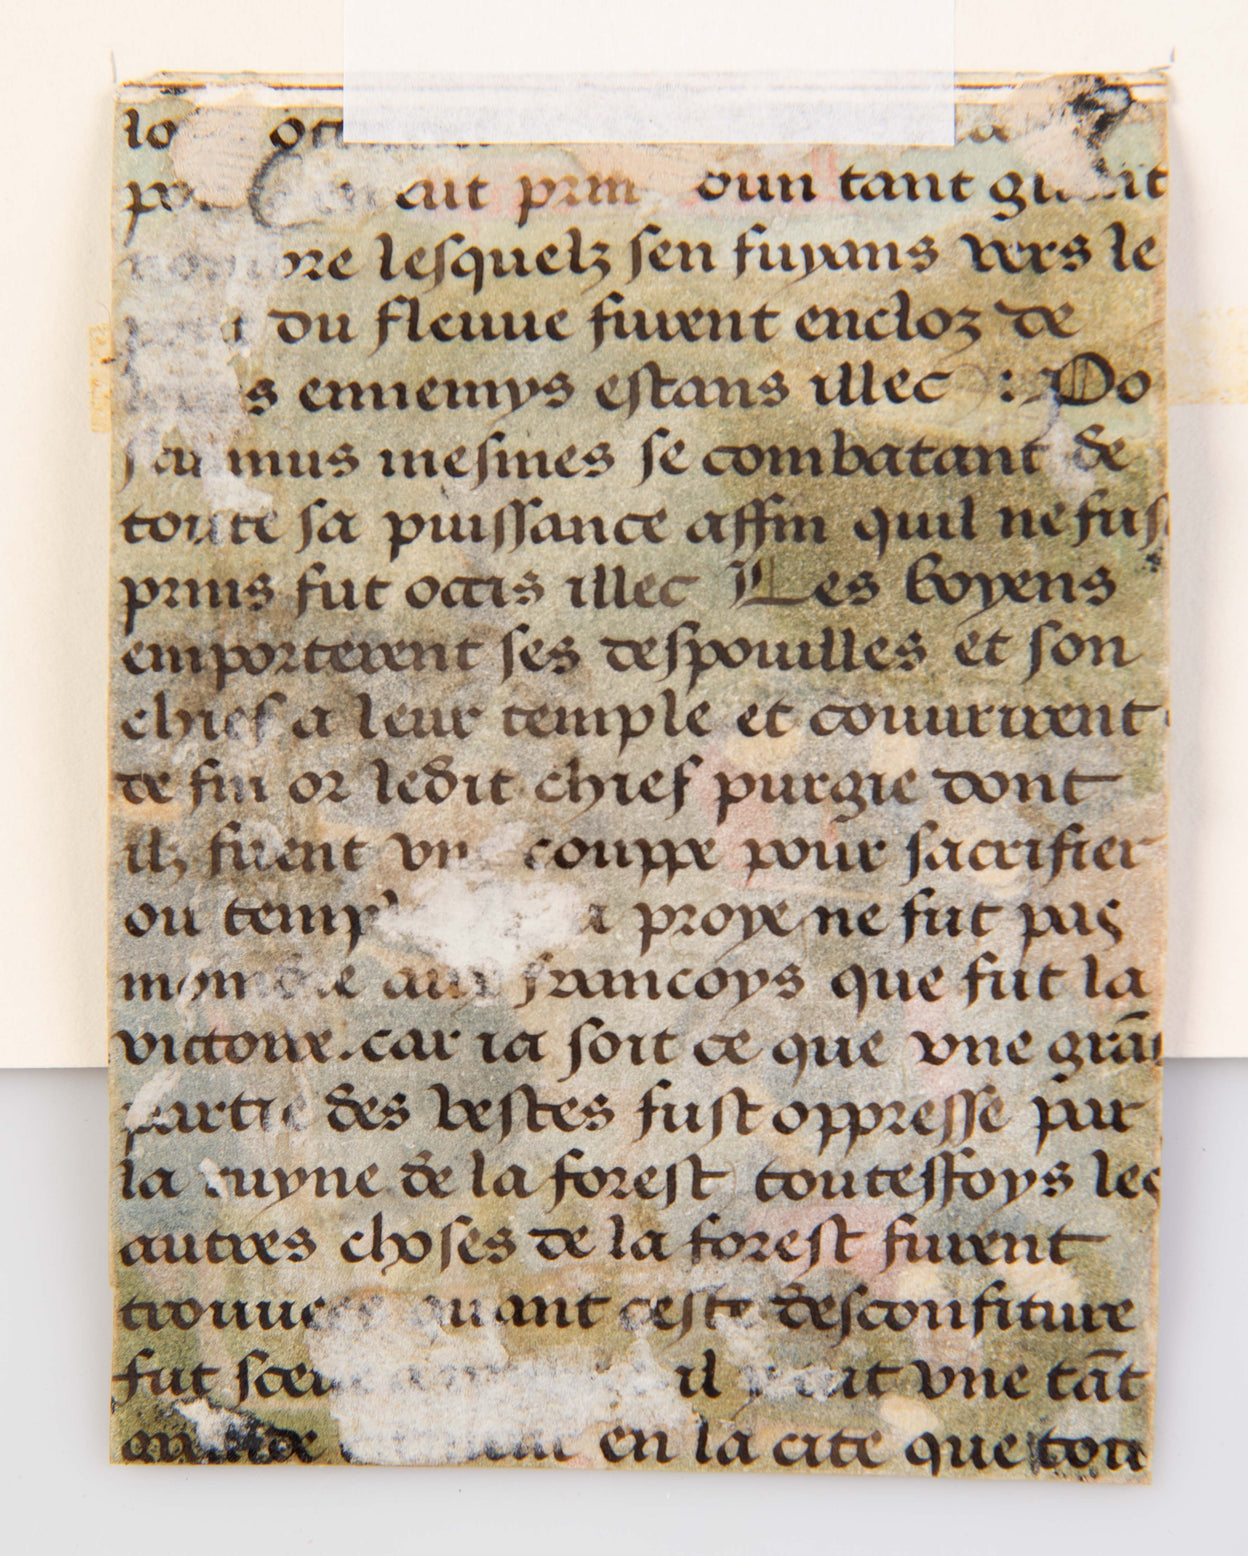 tant
lesquelz sen fuyans vers le
du fleuue furent encloz de
ennemys estans illec : Po
mesmes se combatant de
toute sa puissance affin quil ne fus
prins fut occis illec Les boyens
emporterent ses despouilles et son
chief a leur temple et couurirent
de fin or ledit chief purgie dont
ilz firent vne couppe pour sacrifier
ou proye ne fut pas
francoys que fut la
victoire. car ia soit ce que vne grãd
partie des bestes fust oppresse par
la ruyne de la forest toutessfoys les
autres choses de la forest furent
ceste desconfiture
fut il vne tãt
en la cite que tou